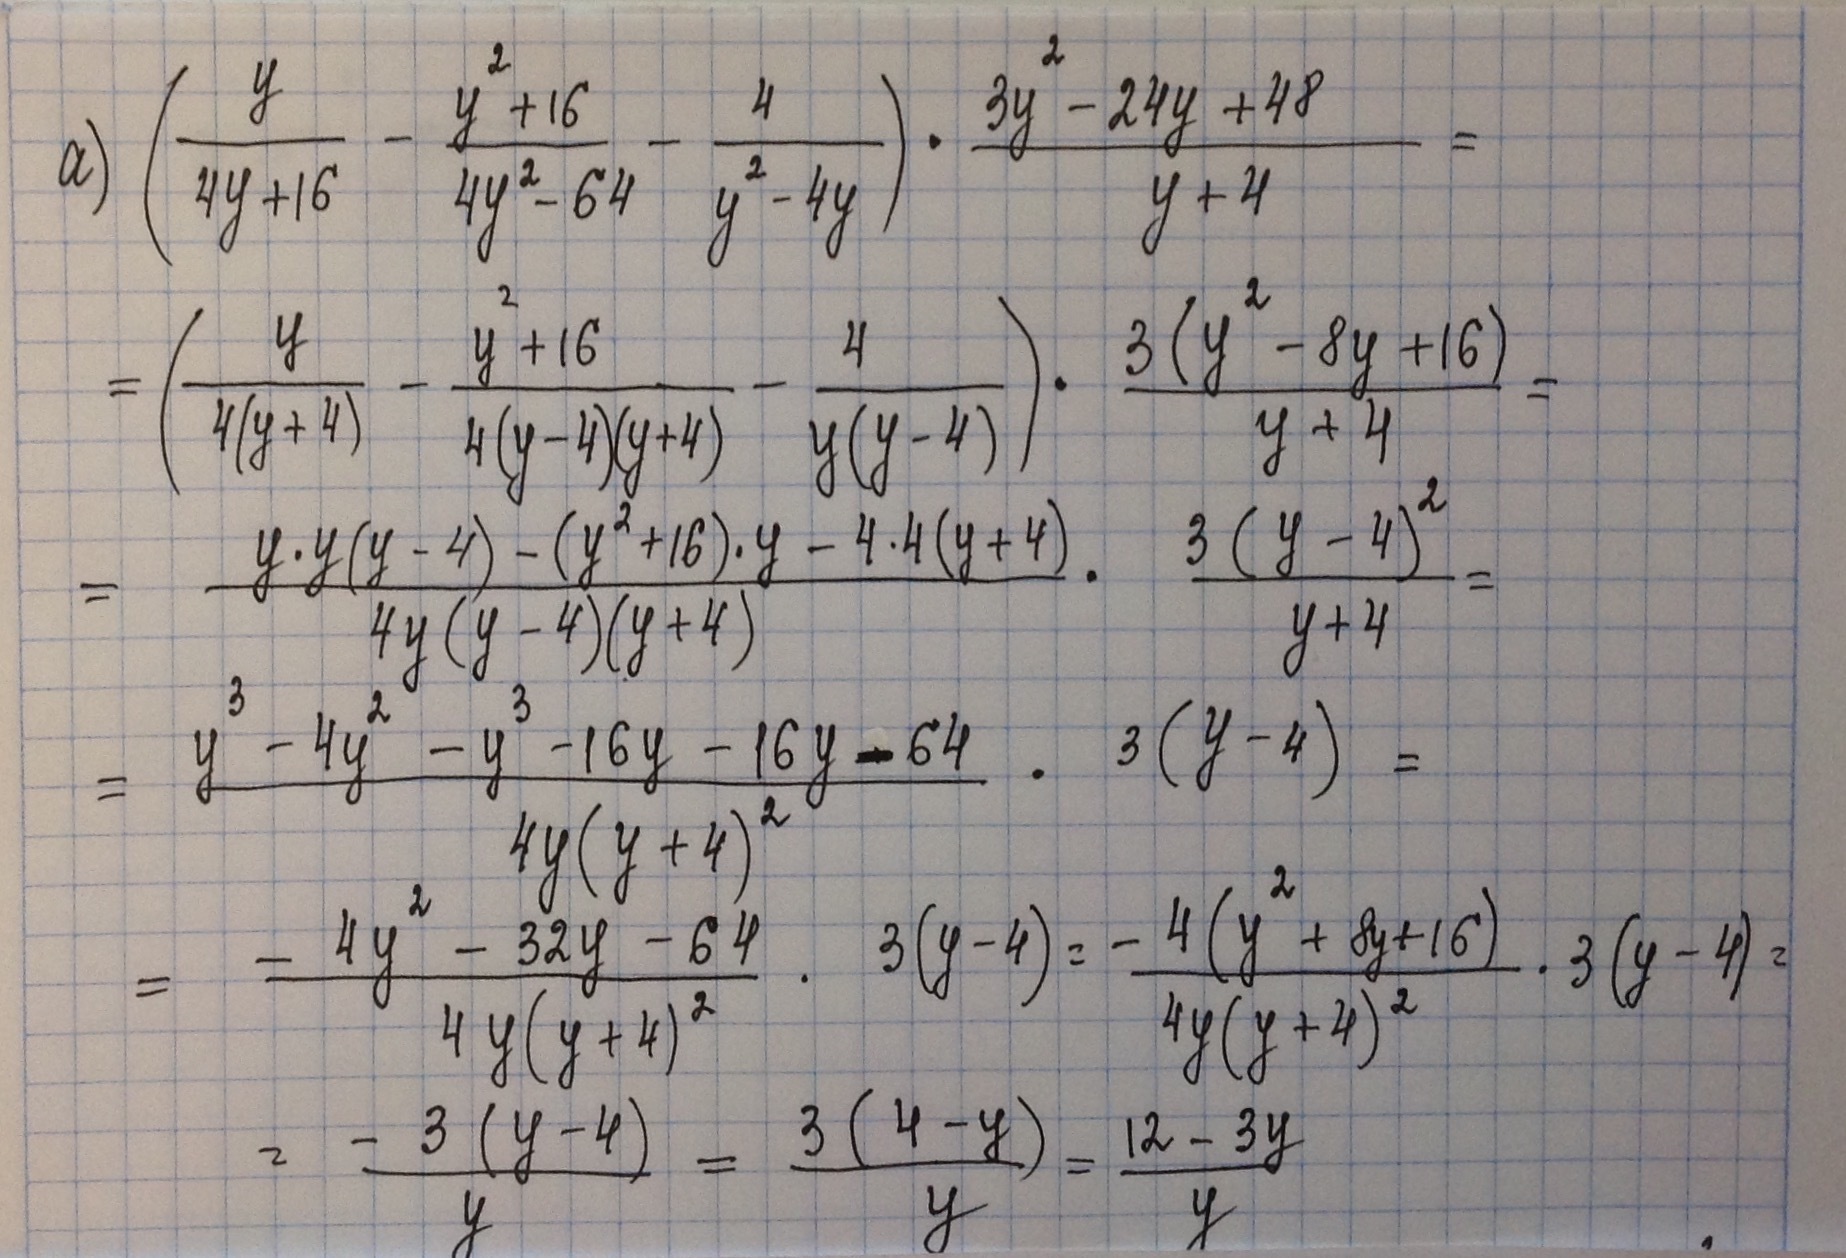 a) (y/(4y+16) - (y²+16)/(4y²-64) - 4/(y²-4y)) · (3y²-24y+48)/(y+4) =
= (y/(4(y+4)) - (y²+16)/(4(y-4)(y+4)) - 4/(y(y-4))) · 3(y²-8y+16)/(y+4) =
= (y·y(y-4) - (y²+16)·y - 4·4(y+4))/(4y(y-4)(y+4)) · 3(y-4)²/(y+4) =
= (y³-4y²-y³-16y-16y-64)/(4y(y+4)²) · 3(y-4) =
= (-4y²-32y-64)/(4y(y+4)²) · 3(y-4) = -4(y²+8y+16)/(4y(y+4)²) · 3(y-4) =
= -3(y-4)/y = 3(4-y)/y = (12-3y)/y